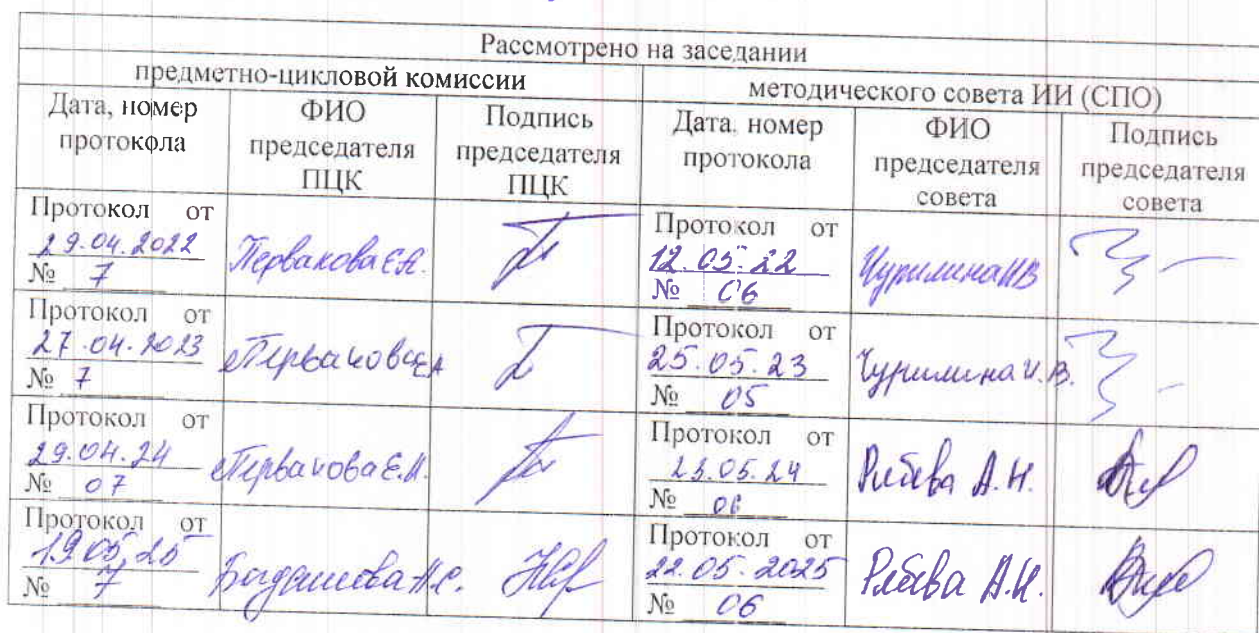 Рассмотрено на заседании
предметно-цикловой комиссии
методического совета ИИ (СПО)
Дата, номер протокола
ФИО председателя ПЦК
Подпись председателя ПЦК
Дата, номер протокола
ФИО председателя совета
Подпись председателя совета
Протокол от
29.04.2022
№ 7
Первакова Е.А.
Протокол от
12.05.22
№ 06
Чурилина И.В.
Протокол от
27.04.2023
№ 7
Первакова Е.А.
Протокол от
25.05.23
№ 05
Чурилина И.В.
Протокол от
29.04.24
№ 07
Первакова Е.А.
Протокол от
23.05.24
№ 06
А.Н.
Протокол от
19.05.25
№ 7
Протокол от
22.05.2025
№ 06
А.Н.